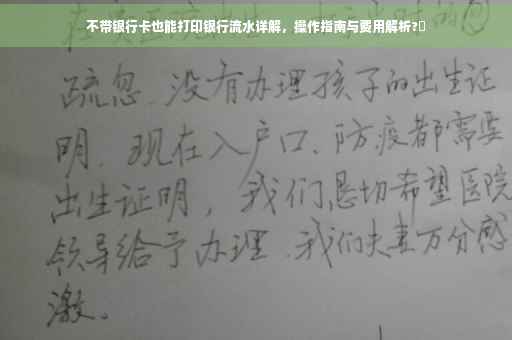 不带银行卡也能打印银行流水详解，操作指南与费用解析?
疏忽.没有办理孩子的出生证
明.现在入户口、防疫都需要
出生证明，我们恳切希望医院
领导给予办理.我们夫妻万分感
激。